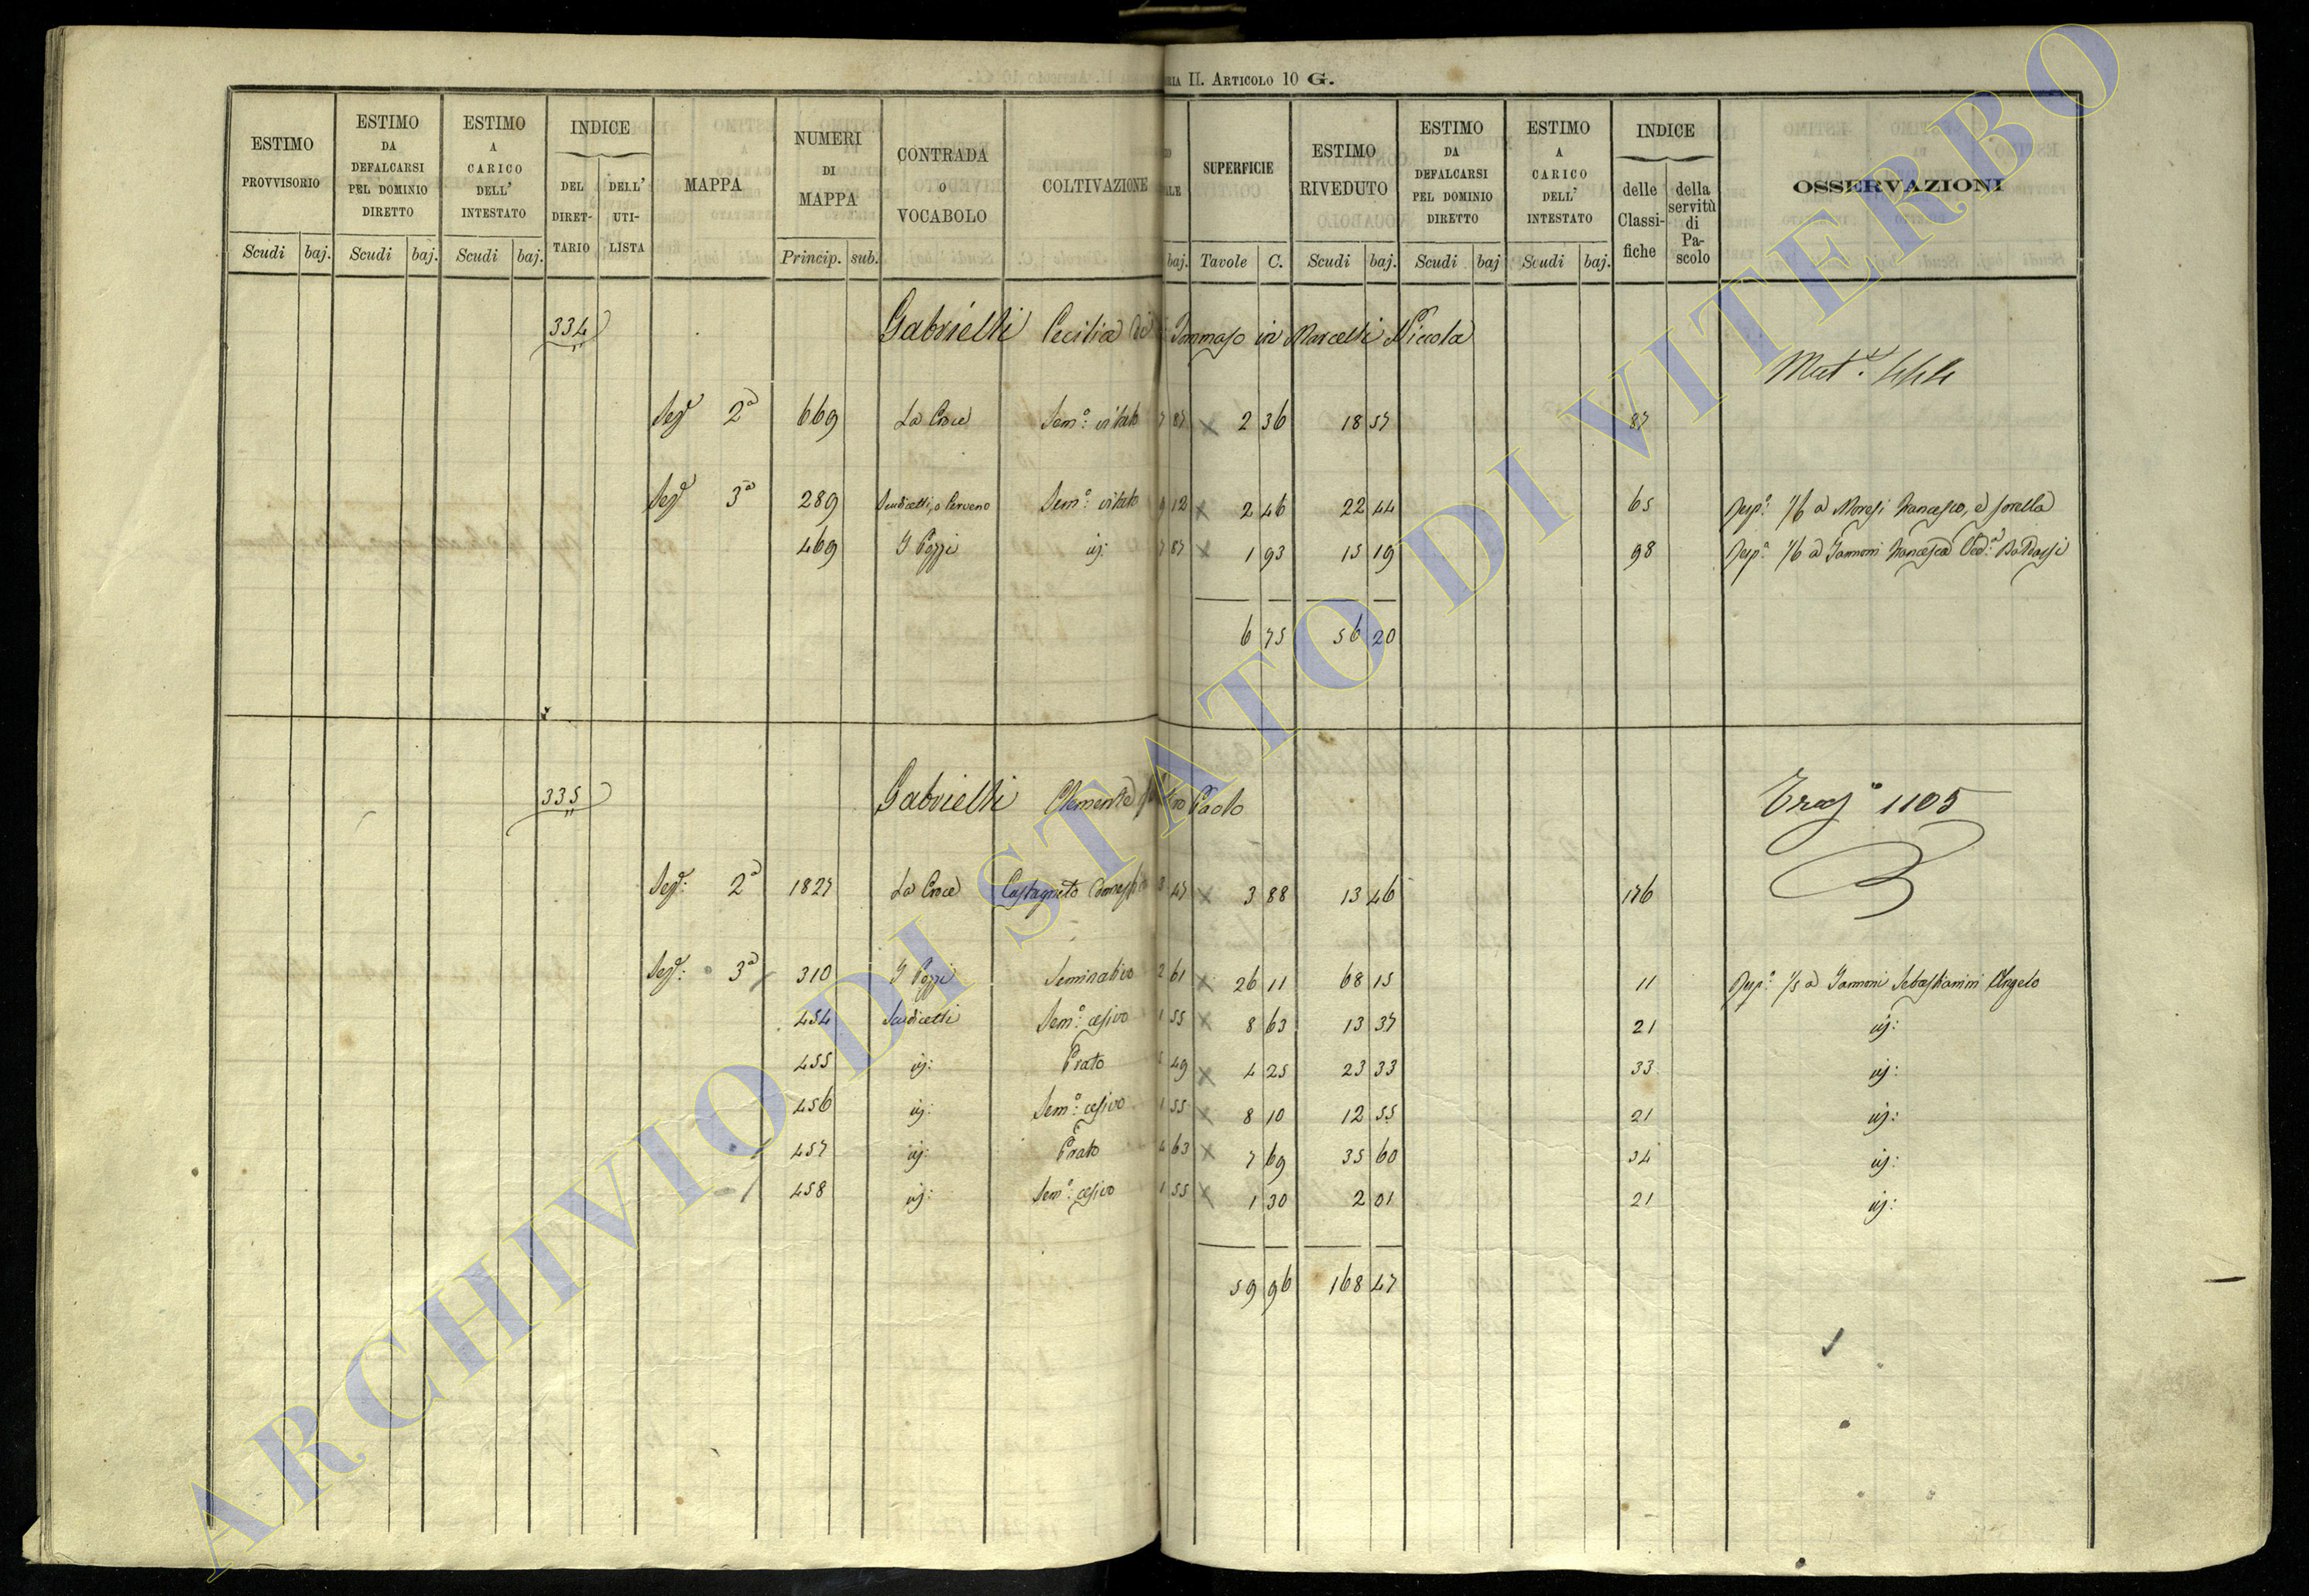 RIA II. ARTICOLO 10 G.
ESTIMO PROVVISORIO Scudi baj.
ESTIMO DA DEFALCARSI PEL DOMINIO DIRETTO Scudi baj.
ESTIMO A CARICO DELL' INTESTATO Scudi baj.
INDICE DEL DIRET-TARIO DELL' UTI-LISTA
MAPPA
NUMERI DI MAPPA Princip. sub.
CONTRADA O VOCABOLO
COLTIVAZIONE
ALE baj.
SUPERFICIE Tavole C.
ESTIMO RIVEDUTO Scudi baj.
ESTIMO DA DEFALCARSI PEL DOMINIO DIRETTO Scudi baj
ESTIMO A CARICO DELL' INTESTATO Scudi baj.
INDICE delle Classi-fiche della servitù di Pa-scolo
OSSERVAZIONI
334 Gabrielli Cecilia di Tommaso in Marcelli Niccola
Mut.e 444
Sez.e 2a 669 La Croce Sem.o vitato 7 87 x 2 36 18 57 87
Sez.e 3a 289 Sem.o vitato 9 12 x 2 46 22 44 65 Resp.a 1/6 a Moresi Francesco, e sorella
469 I Pozzi id: 7 87 x 1 93 15 19 98 Resp.a 1/6 a Iannoni Francesca Ved.a
6 75 56 20
335 Gabrielli Clemente Paolo
Tras.o 1105
Sez.e: 2a 1827 La Croce Castagneto 3 47 x 3 88 13 46 176
Sez.e: 3a 310 I Pozzi Seminativo 2 61 x 26 11 68 15 11 Resp.a 1/5 a Iannoni Sebastianini Angelo
454 Scudicelli Sem.o cesivo 1 55 x 8 63 13 37 21 id:
455 id: Prato 5 49 x 4 25 23 33 33 id:
456 id: Sem.o cesivo 1 55 x 8 10 12 55 21 id:
457 id: Prato 4 63 x 7 69 35 60 34 id:
458 id: Sem.o cesivo 1 55 x 1 30 2 01 21 id:
59 96 168 47
ARCHIVIO DI STATO DI VITERBO